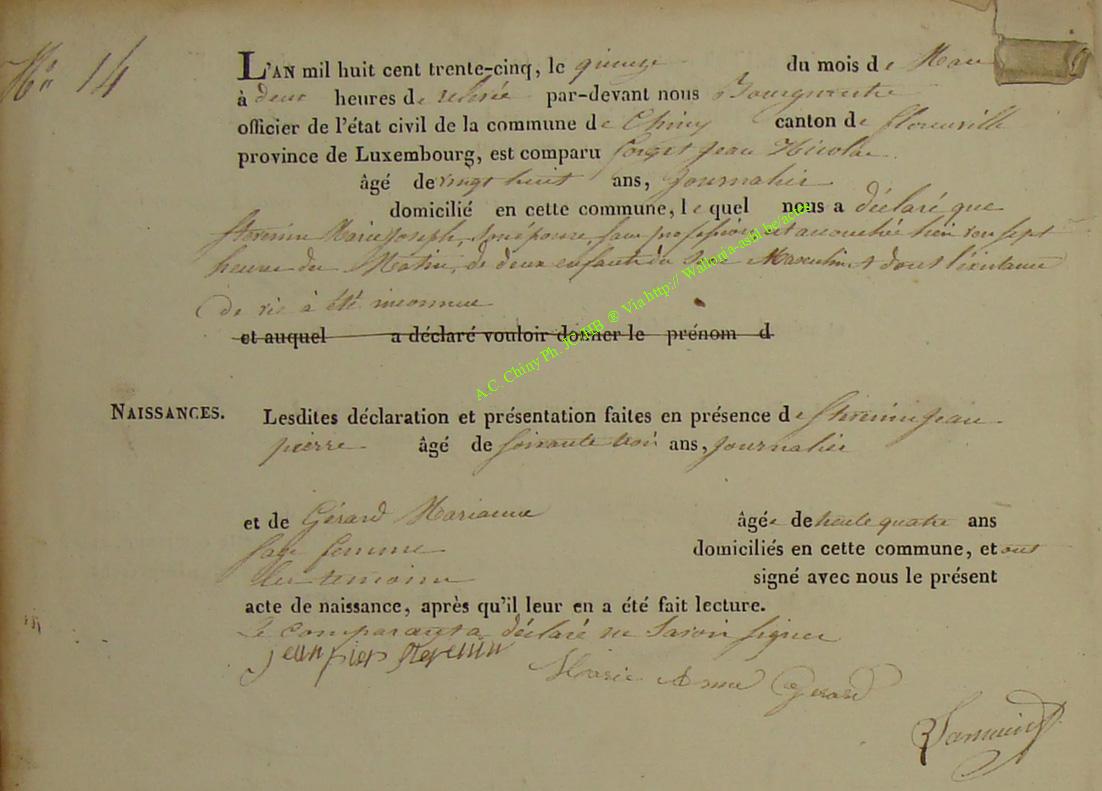 No 14
L'AN mil huit cent trente-cinq, le quinze du mois de Mars
à deux heures de relevée par-devant nous Bourgmestre
officier de l'état civil de la commune de Chiny canton de florenville
province de Luxembourg, est comparu forget Jean Nicolas
âgé de vingt huit ans, Journalier
domicilié en cette commune, le quel nous a déclaré que
Marie Joseph, son épouse, sans profession, est accouchée hier vers sept
heures du Matin, de deux enfants du Sexe Masculin, dont l'existence
de vie à été inconnue
et auquel a déclaré vouloir donner le prénom d
A.C. Chiny Ph. JCMHB ® Via http:// Wallonia-asbl.be/actes
NAISSANCES. Lesdites déclaration et présentation faites en présence de Jean
pierre âgé de soixante trois ans, journalier
et de Gérard Marianne âgée de trente quatre ans
sage femme domiciliés en cette commune, et ont
les temoins signé avec nous le présent
acte de naissance, après qu'il leur en a été fait lecture.
Le comparant a déclaré ne Savoir signer
Jean pier
Marie Anne Gerard